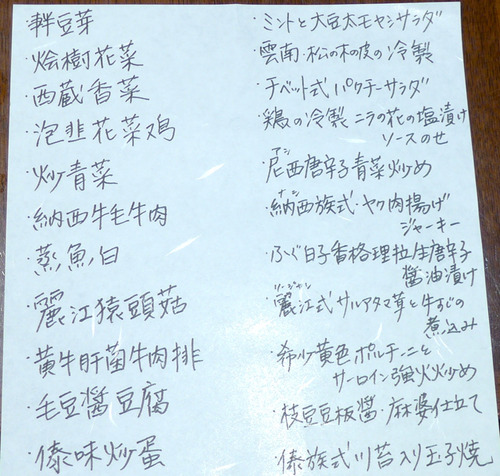 ・豆芽
・烩樹花菜
・西蔵香菜
・泡韭花菜鸡
・炒青菜
・納西牛毛牛肉
・蒸魚白
・麗江猿頭菇
・黄牛肝菌牛肉排
・毛豆醤豆腐
・傣味炒蛋
・ミントと大豆太モヤシサラダ
・雲南・松の木の皮の冷製
・チベット式パクチーサラダ
・鶏の冷製 ニラの花の塩漬け
ソースのせ
・尼西唐辛子青菜炒め
ナシ
・納西族式・ヤク肉揚げ
ジャーキー
・ふぐ白子香格理拉生唐辛子
醤油漬け
リージャン
・麗江式サルアタマ茸と牛すじの
煮込み
・希少黄色ポルチーニと
サーロイン強火炒め
・枝豆豆板醤・麻婆仕立て
・傣族式川苔入り玉子焼